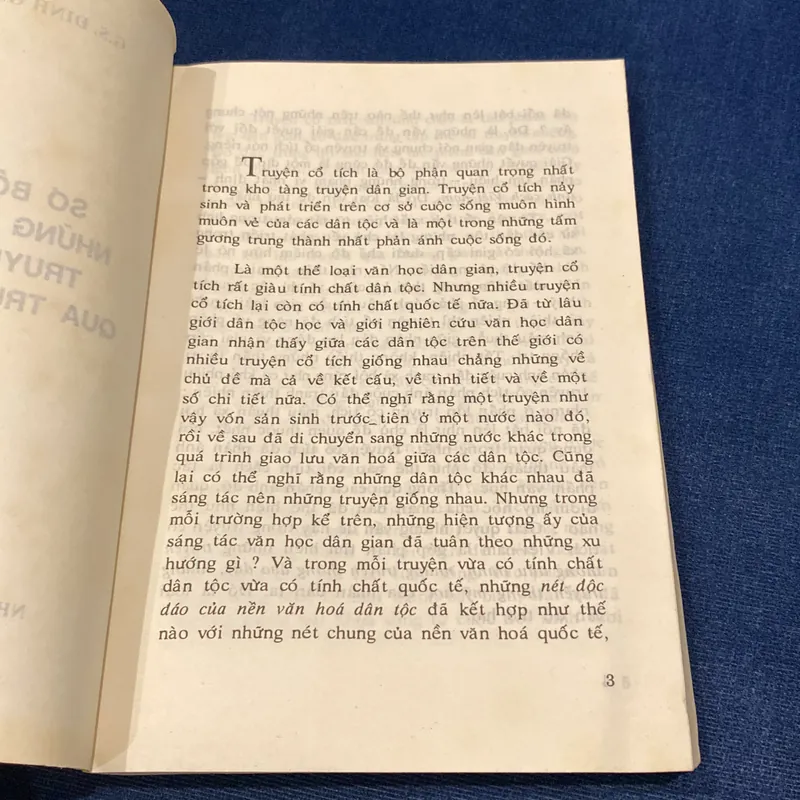 Truyện cổ tích là bộ phận quan trọng nhất
trong kho tàng truyện dân gian. Truyện cổ tích nảy
sinh và phát triển trên cơ sở cuộc sống muôn hình
muôn vẻ của các dân tộc và là một trong những tấm
gương trung thành nhất phản ánh cuộc sống đó.
Là một thể loại văn học dân gian, truyện cổ
tích rất giàu tính chất dân tộc. Nhưng nhiều truyện
cổ tích lại còn có tính chất quốc tế nữa. Đã từ lâu
giới dân tộc học và giới nghiên cứu văn học dân
gian nhận thấy giữa các dân tộc trên thế giới có
nhiều truyện cổ tích giống nhau chẳng những về
chủ đề mà cả về kết cấu, về tình tiết và về một
số chi tiết nữa. Có thể nghĩ rằng một truyện như
vậy vốn sản sinh trước tiên ở một nước nào đó,
rồi về sau đã di chuyển sang những nước khác trong
quá trình giao lưu văn hoá giữa các dân tộc. Cũng
lại có thể nghĩ rằng những dân tộc khác nhau đã
sáng tác nên những truyện giống nhau. Nhưng trong
mỗi trường hợp kể trên, những hiện tượng ấy của
sáng tác văn học dân gian đã tuân theo những xu
hướng gì ? Và trong mỗi truyện vừa có tính chất
dân tộc vừa có tính chất quốc tế, những nét độc
đáo của nền văn hoá dân tộc đã kết hợp như thế
nào với những nét chung của nền văn hoá quốc tế,
3